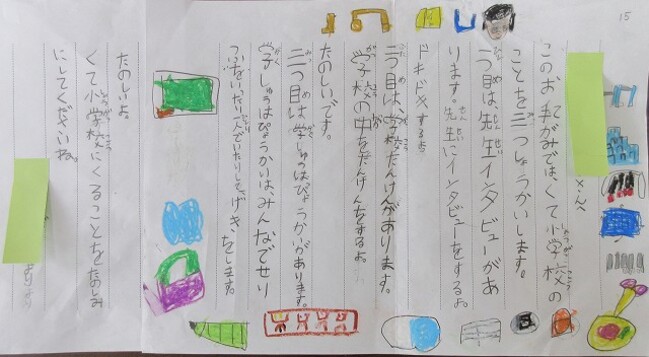 15
さんへ
このお手がみでは、くて小学校の
ことを三つしょうかいします。
一つ目は、先生インタビューがあ
ります。先生にインタビューをするよ。
ドキドキするよ
二つ目は、学校たんけんがあります。
学校の中をたんけんをするよ。
たのしいです。
三つ目は学しゅうはっぴょうかいがあります。
学しゅうはっぴょうかいは、みんなでせり
ふをいったり
げきをします。
たのしいよ
くて小学校にくることをたのしみ
にしてくださいね。
より